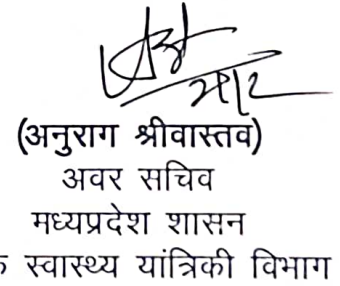 (अनुराग श्रीवास्तव)
अवर सचिव
मध्यप्रदेश शासन
स्वास्थ्य यांत्रिकी विभाग